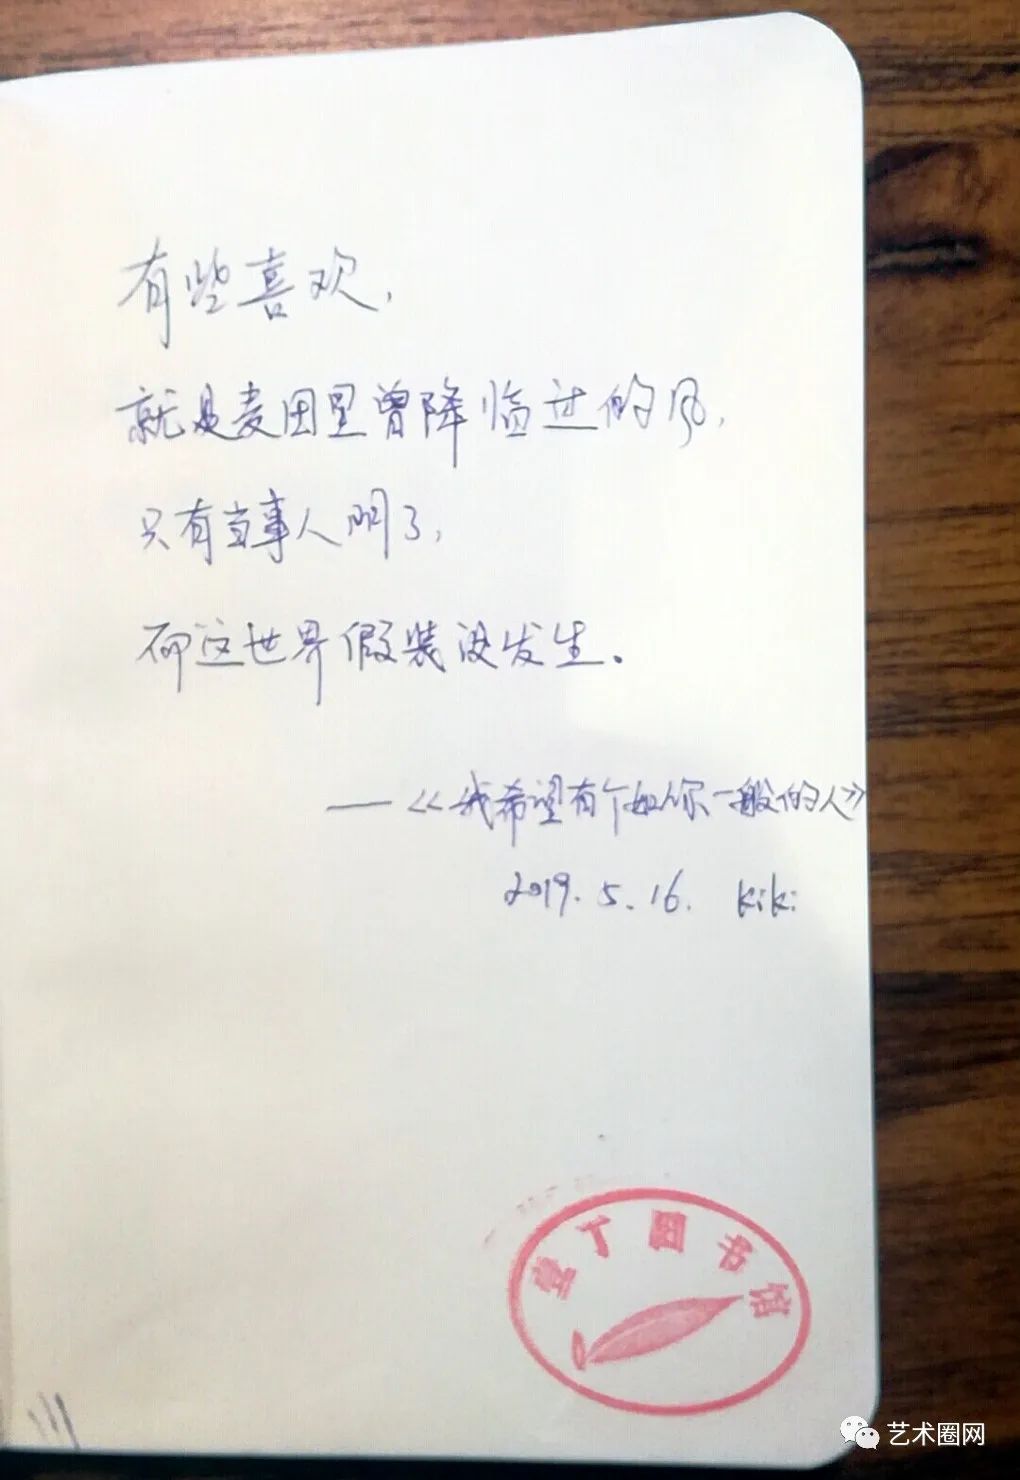 有些喜欢,
就是麦田里曾降临过的风,
只有当事人明了,
而这世界假装没发生。
——《我希望有个如你一般的人》
2019.5.16. kiki
丁图书馆
艺术圈网